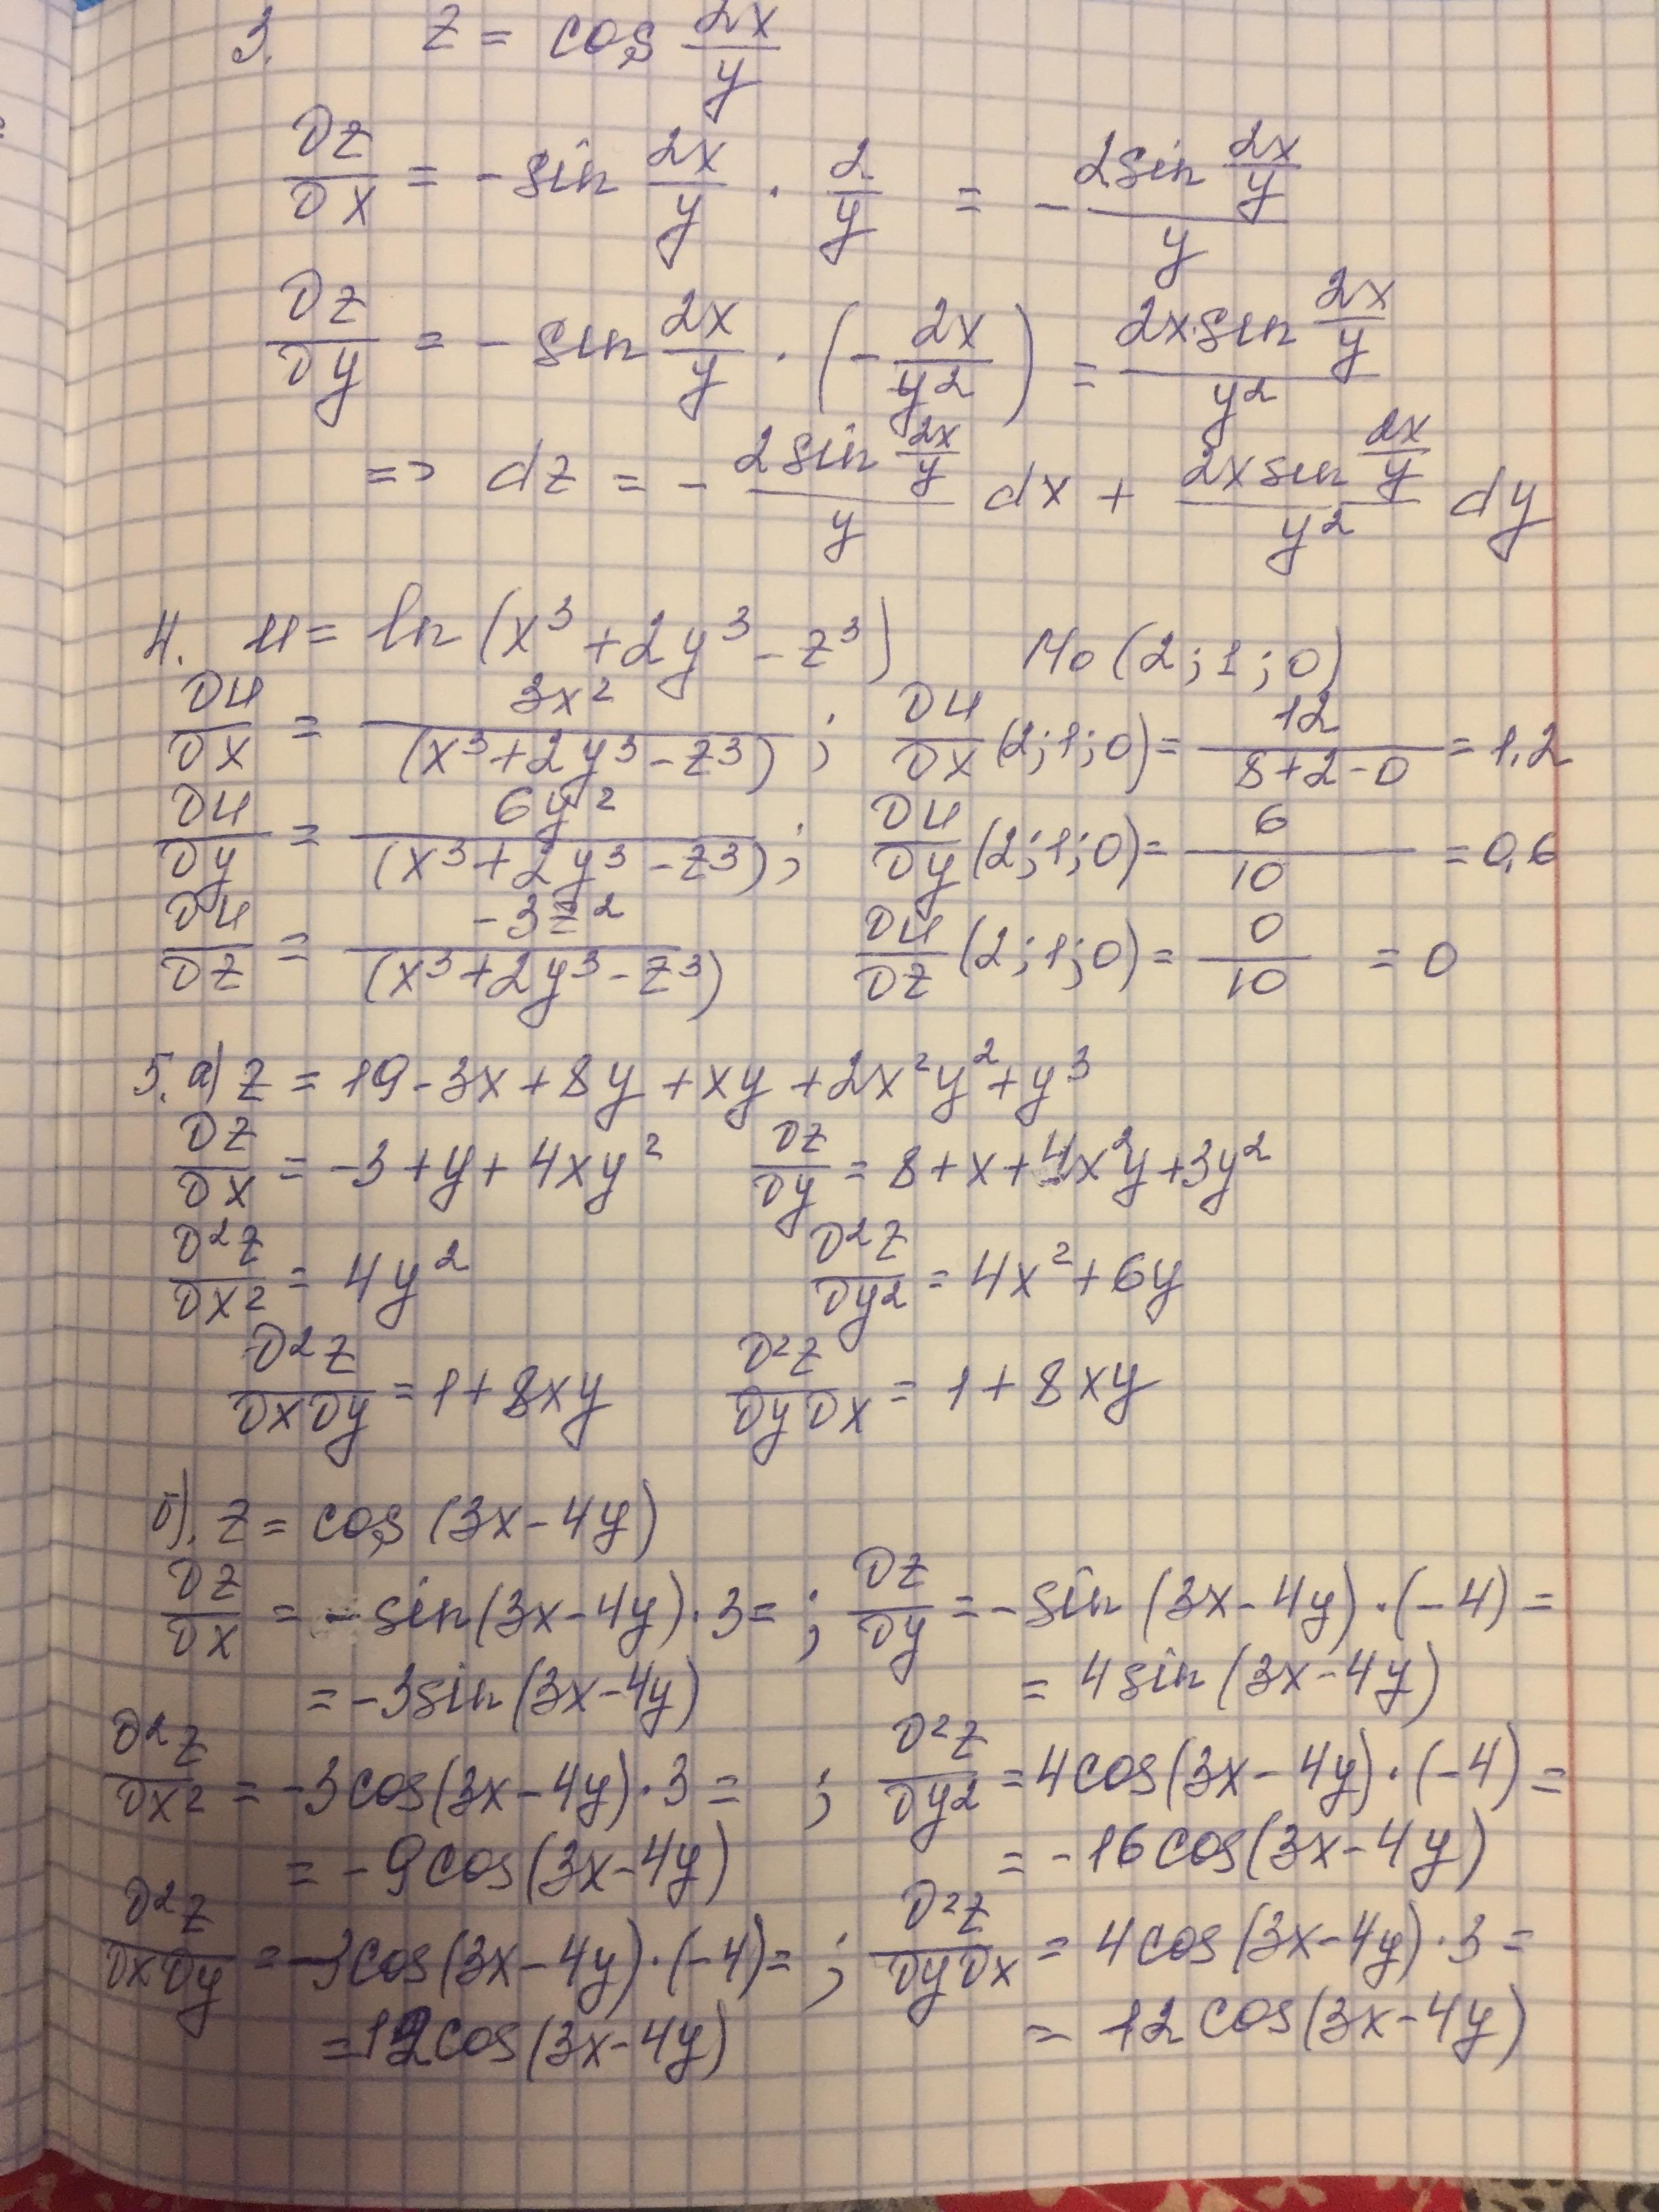 3. z = cos 2x/y
∂z/∂x = - sin 2x/y · 2/y = - (2 sin 2x/y)/y
∂z/∂y = - sin 2x/y · (- 2x/y²) = (2x·sin 2x/y)/y²
=> dz = - (2 sin 2x/y)/y dx + (2x sin 2x/y)/y² dy
4. u = ln (x³ + 2y³ - z³) M₀ (2; 1; 0)
∂u/∂x = 3x²/(x³+2y³-z³) ; ∂u/∂x (2;1;0) = 12/(8+2-0) = 1,2
∂u/∂y = 6y²/(x³+2y³-z³) ; ∂u/∂y (2;1;0) = 6/10 = 0,6
∂u/∂z = -3z²/(x³+2y³-z³) ∂u/∂z (2;1;0) = 0/10 = 0
5. а) z = 19 - 3x + 8y + xy + 2x²y² + y³
∂z/∂x = -3 + y + 4xy² ∂z/∂y = 8 + x + 4x²y + 3y²
∂²z/∂x² = 4y² ∂²z/∂y² = 4x² + 6y
∂²z/∂x∂y = 1 + 8xy ∂²z/∂y∂x = 1 + 8xy
б). z = cos (3x - 4y)
∂z/∂x = - sin (3x - 4y) · 3 = ; ∂z/∂y = - sin (3x - 4y) · (-4) =
= -3 sin (3x - 4y) = 4 sin (3x - 4y)
∂²z/∂x² = -3 cos (3x - 4y) · 3 = ; ∂²z/∂y² = 4 cos (3x - 4y) · (-4) =
= -9 cos (3x - 4y) = -16 cos (3x - 4y)
∂²z/∂x∂y = -3 cos (3x - 4y) · (-4) = ; ∂²z/∂y∂x = 4 cos (3x - 4y) · 3 =
= 12 cos (3x - 4y) = 12 cos (3x - 4y)